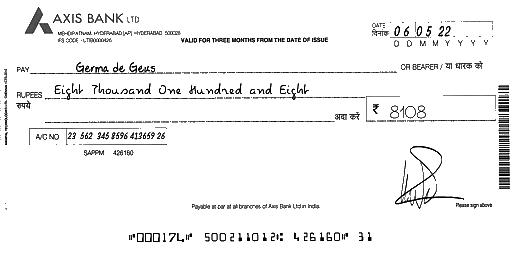 AXIS BANK LTD
MEHDIPATNAM, HYDERABAD [AP] HYDERABAD 500028
IFS CODE - UTIB0000426
VALID FOR THREE MONTHS FROM THE DATE OF ISSUE
DATE
दिनांक 06 05 22
D D M M Y Y Y Y
PAY Germa de Geus OR BEARER / या धारक को
RUPEES Eight Thousand One Hundred and Eight
रुपये अदा करें ₹ 8108
A/C NO 23 562 345 8596 413659 26
SAPPM 426160
Payable at par at all branches of Axis Bank Ltd in India.
Please sign above
⑈000174⑈ 500211012⑆ 426160⑈ 31